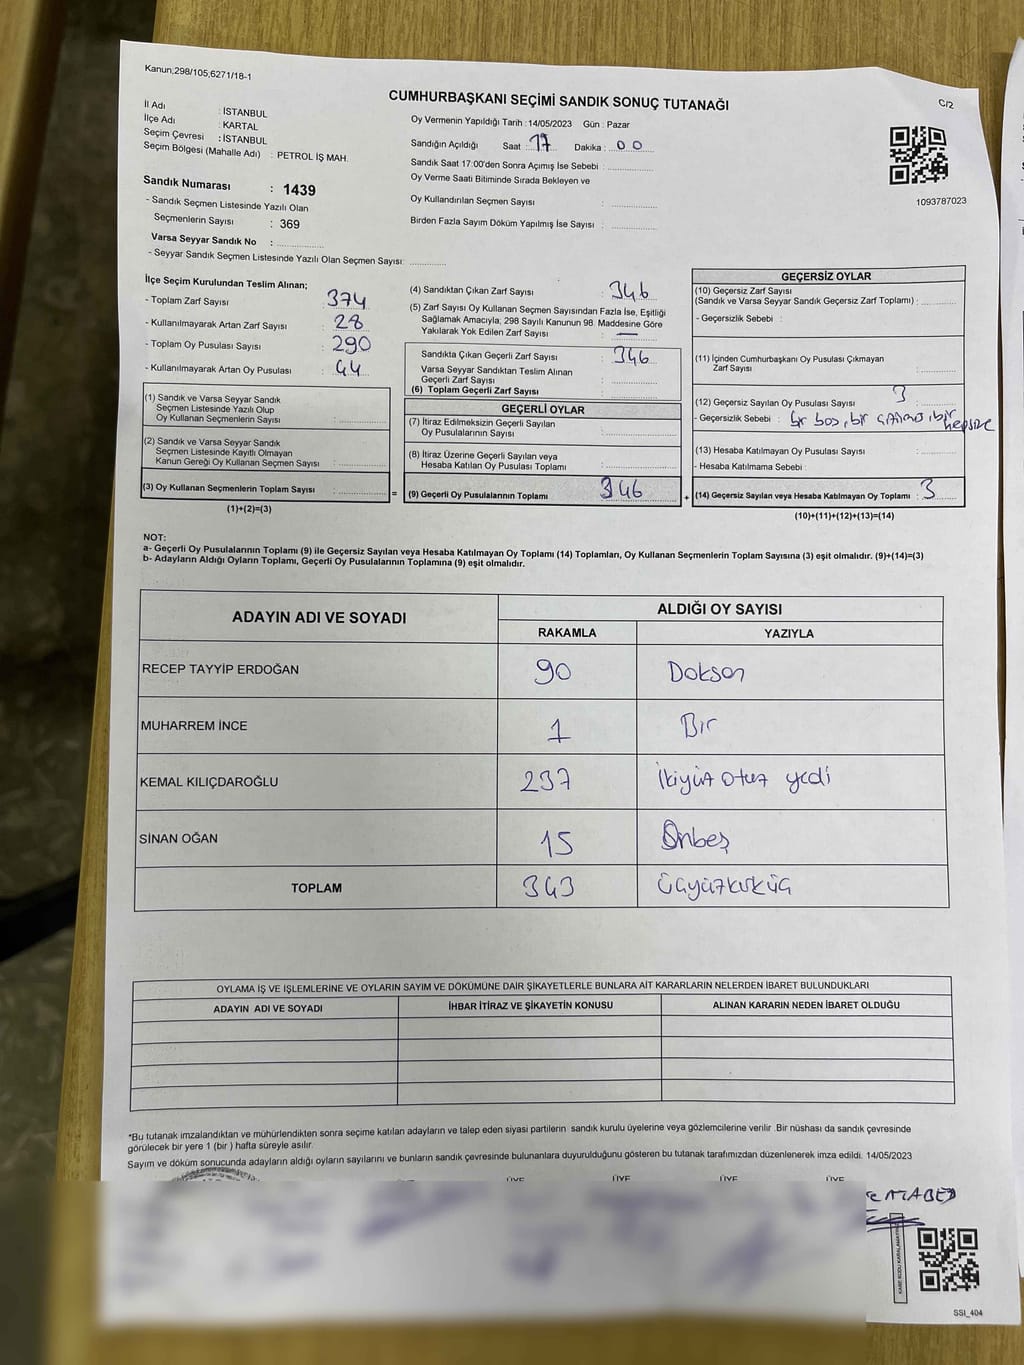 Kanun;298/105,6271/18-1
CUMHURBAŞKANI SEÇİMİ SANDIK SONUÇ TUTANAĞI
C/2
İl Adı : İSTANBUL
İlçe Adı : KARTAL
Seçim Çevresi : İSTANBUL
Seçim Bölgesi (Mahalle Adı) : PETROL İŞ MAH.
Sandık Numarası : 1439
- Sandık Seçmen Listesinde Yazılı Olan
Seçmenlerin Sayısı : 369
Varsa Seyyar Sandık No :
- Seyyar Sandık Seçmen Listesinde Yazılı Olan Seçmen Sayısı:
Oy Vermenin Yapıldığı Tarih : 14/05/2023 Gün : Pazar
Sandığın Açıldığı Saat : 17 Dakika : 00
Sandık Saat 17:00'den Sonra Açımış İse Sebebi :
Oy Verme Saati Bitiminde Sırada Bekleyen ve
Oy Kullandırılan Seçmen Sayısı :
Birden Fazla Sayım Döküm Yapılmış İse Sayısı :
1093787023
İlçe Seçim Kurulundan Teslim Alınan;
- Toplam Zarf Sayısı : 374
- Kullanılmayarak Artan Zarf Sayısı : 28
- Toplam Oy Pusulası Sayısı : 290
- Kullanılmayarak Artan Oy Pusulası : 44
(1) Sandık ve Varsa Seyyar Sandık
Seçmen Listesinde Yazılı Olup
Oy Kullanan Seçmenlerin Sayısı :
(2) Sandık ve Varsa Seyyar Sandık
Seçmen Listesinde Kayıtlı Olmayan
Kanun Gereği Oy Kullanan Seçmen Sayısı :
(3) Oy Kullanan Seçmenlerin Toplam Sayısı :
(1)+(2)=(3)
(4) Sandıktan Çıkan Zarf Sayısı : 346
(5) Zarf Sayısı Oy Kullanan Seçmen Sayısından Fazla İse, Eşitliği
Sağlamak Amacıyla; 298 Sayılı Kanunun 98. Maddesine Göre
Yakılarak Yok Edilen Zarf Sayısı : —
Sandıkta Çıkan Geçerli Zarf Sayısı : 346
Varsa Seyyar Sandıktan Teslim Alınan
Geçerli Zarf Sayısı :
(6) Toplam Geçerli Zarf Sayısı :
GEÇERLİ OYLAR
(7) İtiraz Edilmeksizin Geçerli Sayılan
Oy Pusulalarının Sayısı :
(8) İtiraz Üzerine Geçerli Sayılan veya
Hesaba Katılan Oy Pusulası Toplamı :
= (9) Geçerli Oy Pusulalarının Toplamı : 346
GEÇERSİZ OYLAR
(10) Geçersiz Zarf Sayısı
(Sandık ve Varsa Seyyar Sandık Geçersiz Zarf Toplamı) :
- Geçersizlik Sebebi :
(11) İçinden Cumhurbaşkanı Oy Pusulası Çıkmayan
Zarf Sayısı :
(12) Geçersiz Sayılan Oy Pusulası Sayısı : 3
- Geçersizlik Sebebi : bir boş, bir bir
(13) Hesaba Katılmayan Oy Pusulası Sayısı :
- Hesaba Katılmama Sebebi :
+ (14) Geçersiz Sayılan veya Hesaba Katılmayan Oy Toplamı : 3
(10)+(11)+(12)+(13)=(14)
NOT:
a- Geçerli Oy Pusulalarının Toplamı (9) ile Geçersiz Sayılan veya Hesaba Katılmayan Oy Toplamı (14) Toplamları, Oy Kullanan Seçmenlerin Toplam Sayısına (3) eşit olmalıdır. (9)+(14)=(3)
b- Adayların Aldığı Oyların Toplamı, Geçerli Oy Pusulalarının Toplamına (9) eşit olmalıdır.
ADAYIN ADI VE SOYADI ALDIĞI OY SAYISI
RAKAMLA YAZIYLA
RECEP TAYYİP ERDOĞAN 90 Doksan
MUHARREM İNCE 1 Bir
KEMAL KILIÇDAROĞLU 237 İkiyüz otuz yedi
SİNAN OĞAN 15 Onbeş
TOPLAM 343 üçyüzkırküç
OYLAMA İŞ VE IŞLEMLERINE VE OYLARIN SAYIM VE DÖKÜMÜNE DAIR ŞIKAYETLERLE BUNLARA AİT KARARLARIN NELERDEN İBARET BULUNDUKLARI
ADAYIN ADI VE SOYADI İHBAR İTİRAZ VE ŞİKAYETİN KONUSU ALINAN KARARIN NEDEN İBARET OLDUĞU
*Bu tutanak imzalandıktan ve mühürlendikten sonra seçime katılan adayların ve talep eden siyasi partilerin sandık kurulu üyelerine veya gözlemcilerine verilir .Bir nüshası da sandık çevresinde
görülecek bir yere 1 (bir ) hafta süreyle asılır.
Sayım ve döküm sonucunda adayların aldığı oyların sayılarını ve bunların sandık çevresinde bulunanlara duyurulduğunu gösteren bu tutanak tarafımızdan düzenlenerek imza edildi. 14/05/2023
ÜYE ÜYE ÜYE ÜYE
SSI_404